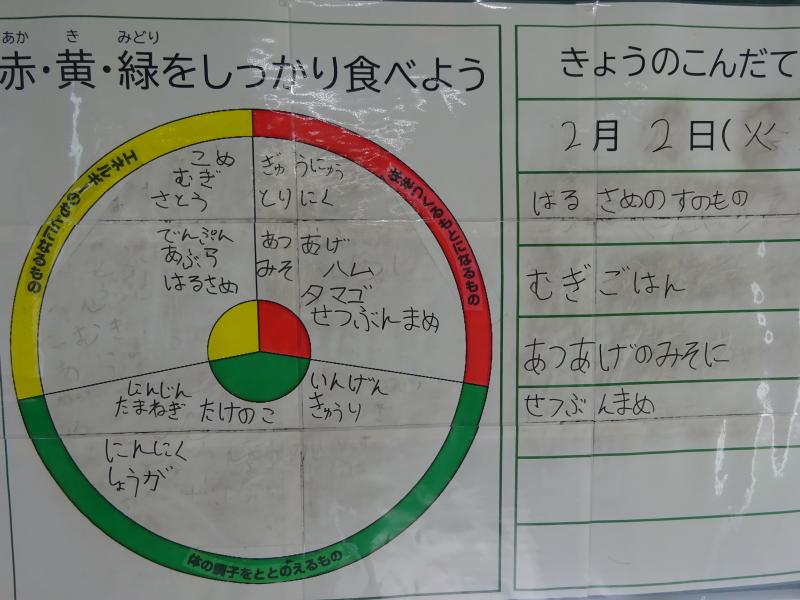 あか き みどり
赤・黄・緑をしっかり食べよう
エネルギーのもとになるもの
体をつくるもとになるもの
こめ
むぎ
さとう
でんぷん
あぶら
はるさめ
ぎゅうにゅう
とりにく
あつあげ
みそ ハム
タマゴ
せつぶんまめ
にんじん
たまねぎ たけのこ
いんげん
きゅうり
にんにく
しょうが
体の調子をととのえるもの
きょうのこんだて
2月 2日(火
はるさめのすのもの
むぎごはん
あつあげのみそに
せつぶんまめ